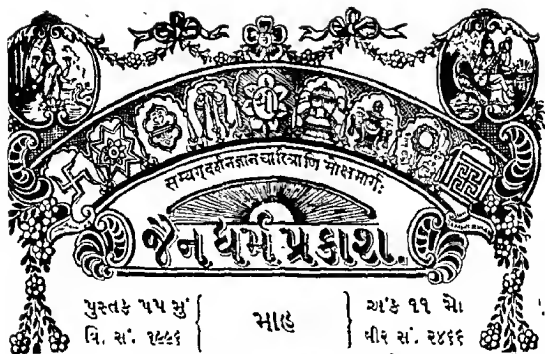 श्री
सम्यग्दर्शनज्ञानचारित्राणि मोक्षमार्गः
જૈન ધર્મ પ્રકાશ.
પુસ્તક ૫૫ મું
વિ. સં. ૧૯૯૬
માહ
અંક ૧૧ મો
વીર સં. ૨૪૬૬